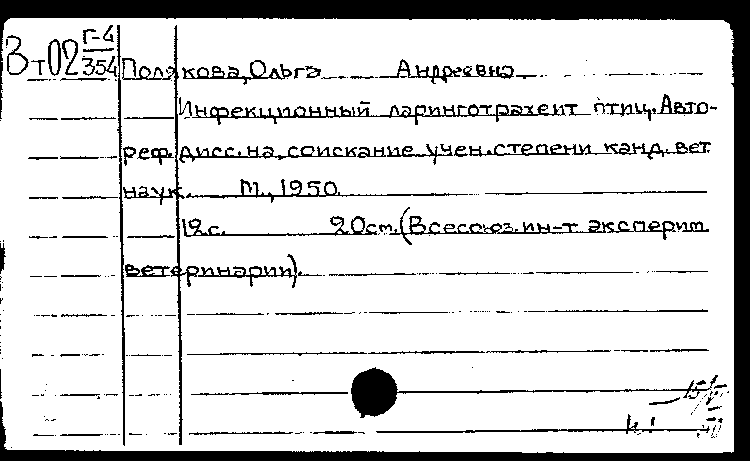 Вт02 Г-4
354
Полякова, Ольга Андреевна
Инфекционный ларинготрахеит птиц. Авто-
реф. дисс. на соискание учен. степени канд. вет.
наук. М., 1950.
12с. 20см. (Всесоюз. ин-т эксперим.
ветеринарии).